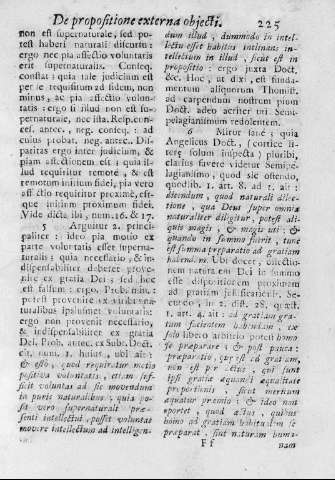 De propositione externa objecti. 225
non est supernaturale, sed po-
test haberi naturali discursu:
ergo nec pia affectio voluntatis
erit supernaturalis. Conseq.
constat: quia tale judicium est
per se requisitum ad fidem, non
minus, ac pia affectio volun-
tatis: ergo si illud non est su-
pernaturale, nec ista. Resp. con-
ces. antec., neg. conseq.: ad
cuius probat. neg. antec. Dis-
paritas ergo inter judicium, &
piam affectionem est: quia il-
lud requiritur remotè, & est
remotum initium fidei, pia vero
affectio requiritur proximè, est-
que initium proximum fidei.
Vide dicta ibi, num. 16. & 17.
5 Arguitur 2. princi-
paliter: ideo pia motio ex
parte voluntatis esset superna-
turalis: quia necessario, & in-
dispensabiliter deberet prove-
nire ex gratia Dei: sed hoc
est falsum: ergo. Prob. min.
potest provenire ex viribus na-
turalibus ipsiusmet voluntatis:
ergo non provenit necessario,
& indispensabiliter ex gratia
Dei. Prob. antec. ex Subt. Doct.
cit. num. 1. huius, ubi ait:
& esto, quod requiratur motio
positiva voluntatis, etiam suf-
ficit voluntas ad sic movendum
in puris naturalibus; quia po-
sito vero supernaturali præ-
senti intellectui, posset voluntas
movere intellectum ad intelligen-
dum illud, dummodo in intel-
lectu esset habitus intlinans in-
tellectum in illud, sicut est in
proposito: ergo juxta Doct.
&c. Hoc, ut dixi, est funda-
mentum aliquorum Thomist.
ad carpendum nostrum pium
Doct. adeo acriter uti Semi-
pelagianismum redolentem.
6 Miror sanè; quia
Angelicus Doct., (cortice lit-
teræ solum inspecta) pluribi,
clarius favere videtur Semipe-
lagianismo, quod sic ostendo,
quodlib. 1. art. 8. ad 1. ait:
dicendum, quod naturali dile-
ctione, qua Deus super omnia
naturaliter diligitur, potest ali-
quis magis, & magis uti: &
quando in summo fuerit, tunc
est summa præparatio ad gratiam
habendam. Ubi docet, dilectio-
nem naturalem Dei in summo
esse dispositionem proximam
ad gratiam justificantem. Se-
cundo, in 2. dist. 28. quæst.
1. art. 4. ait: ad gratiam gra-
tum facientem habendam, ex
solo libero arbitrio potest homo
se præparare; & post pauca:
præparatio, quæ est ad gratiam,
non est per actus, qui sunt
ipsi gratiæ æquandi æqualitate
proportionis, sicut meritum
æquatur præmio; & ideo non
oportet, quod actus, quibus
homo ad gratiam habendam se
præparat, sint naturam huma-
Ff nam